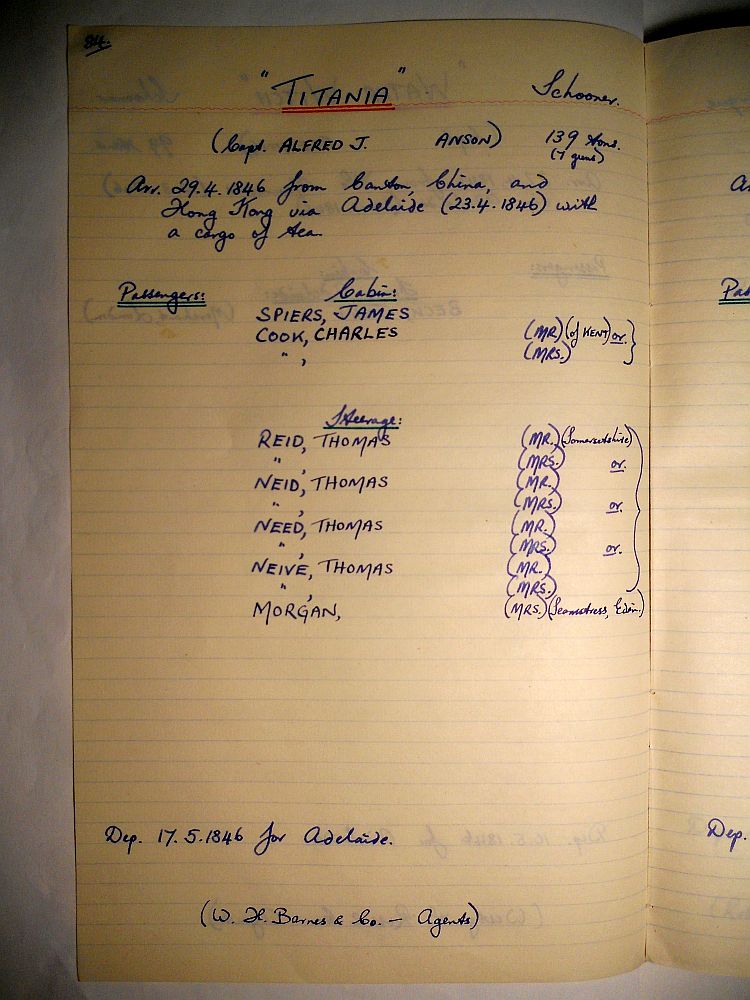 84.
"TITANIA" Schooner.
(Capt. ALFRED J. ANSON) 139 tons.
(7 guns)
Arr. 29.4.1846 from Canton, China, and
Hong Kong via Adelaide (23.4.1846) with
a cargo of tea.
Passengers: Cabin:
SPIERS, JAMES
COOK, CHARLES (MR.) (of KENT) or.
" , (MRS.)
Steerage:
REID, THOMAS (MR.) (Somersetshire)
" , (MRS.) or.
NEID, THOMAS (MR.)
" , (MRS.) or.
NEED, THOMAS (MR.)
" , (MRS.) or.
NEIVE, THOMAS (MR.)
" , (MRS.)
MORGAN, (MRS.) (Seamstress, Edin.)
Dep. 17.5.1846 for Adelaide.
(W. H. Barnes & Co. - Agents)
Pas
Dep.